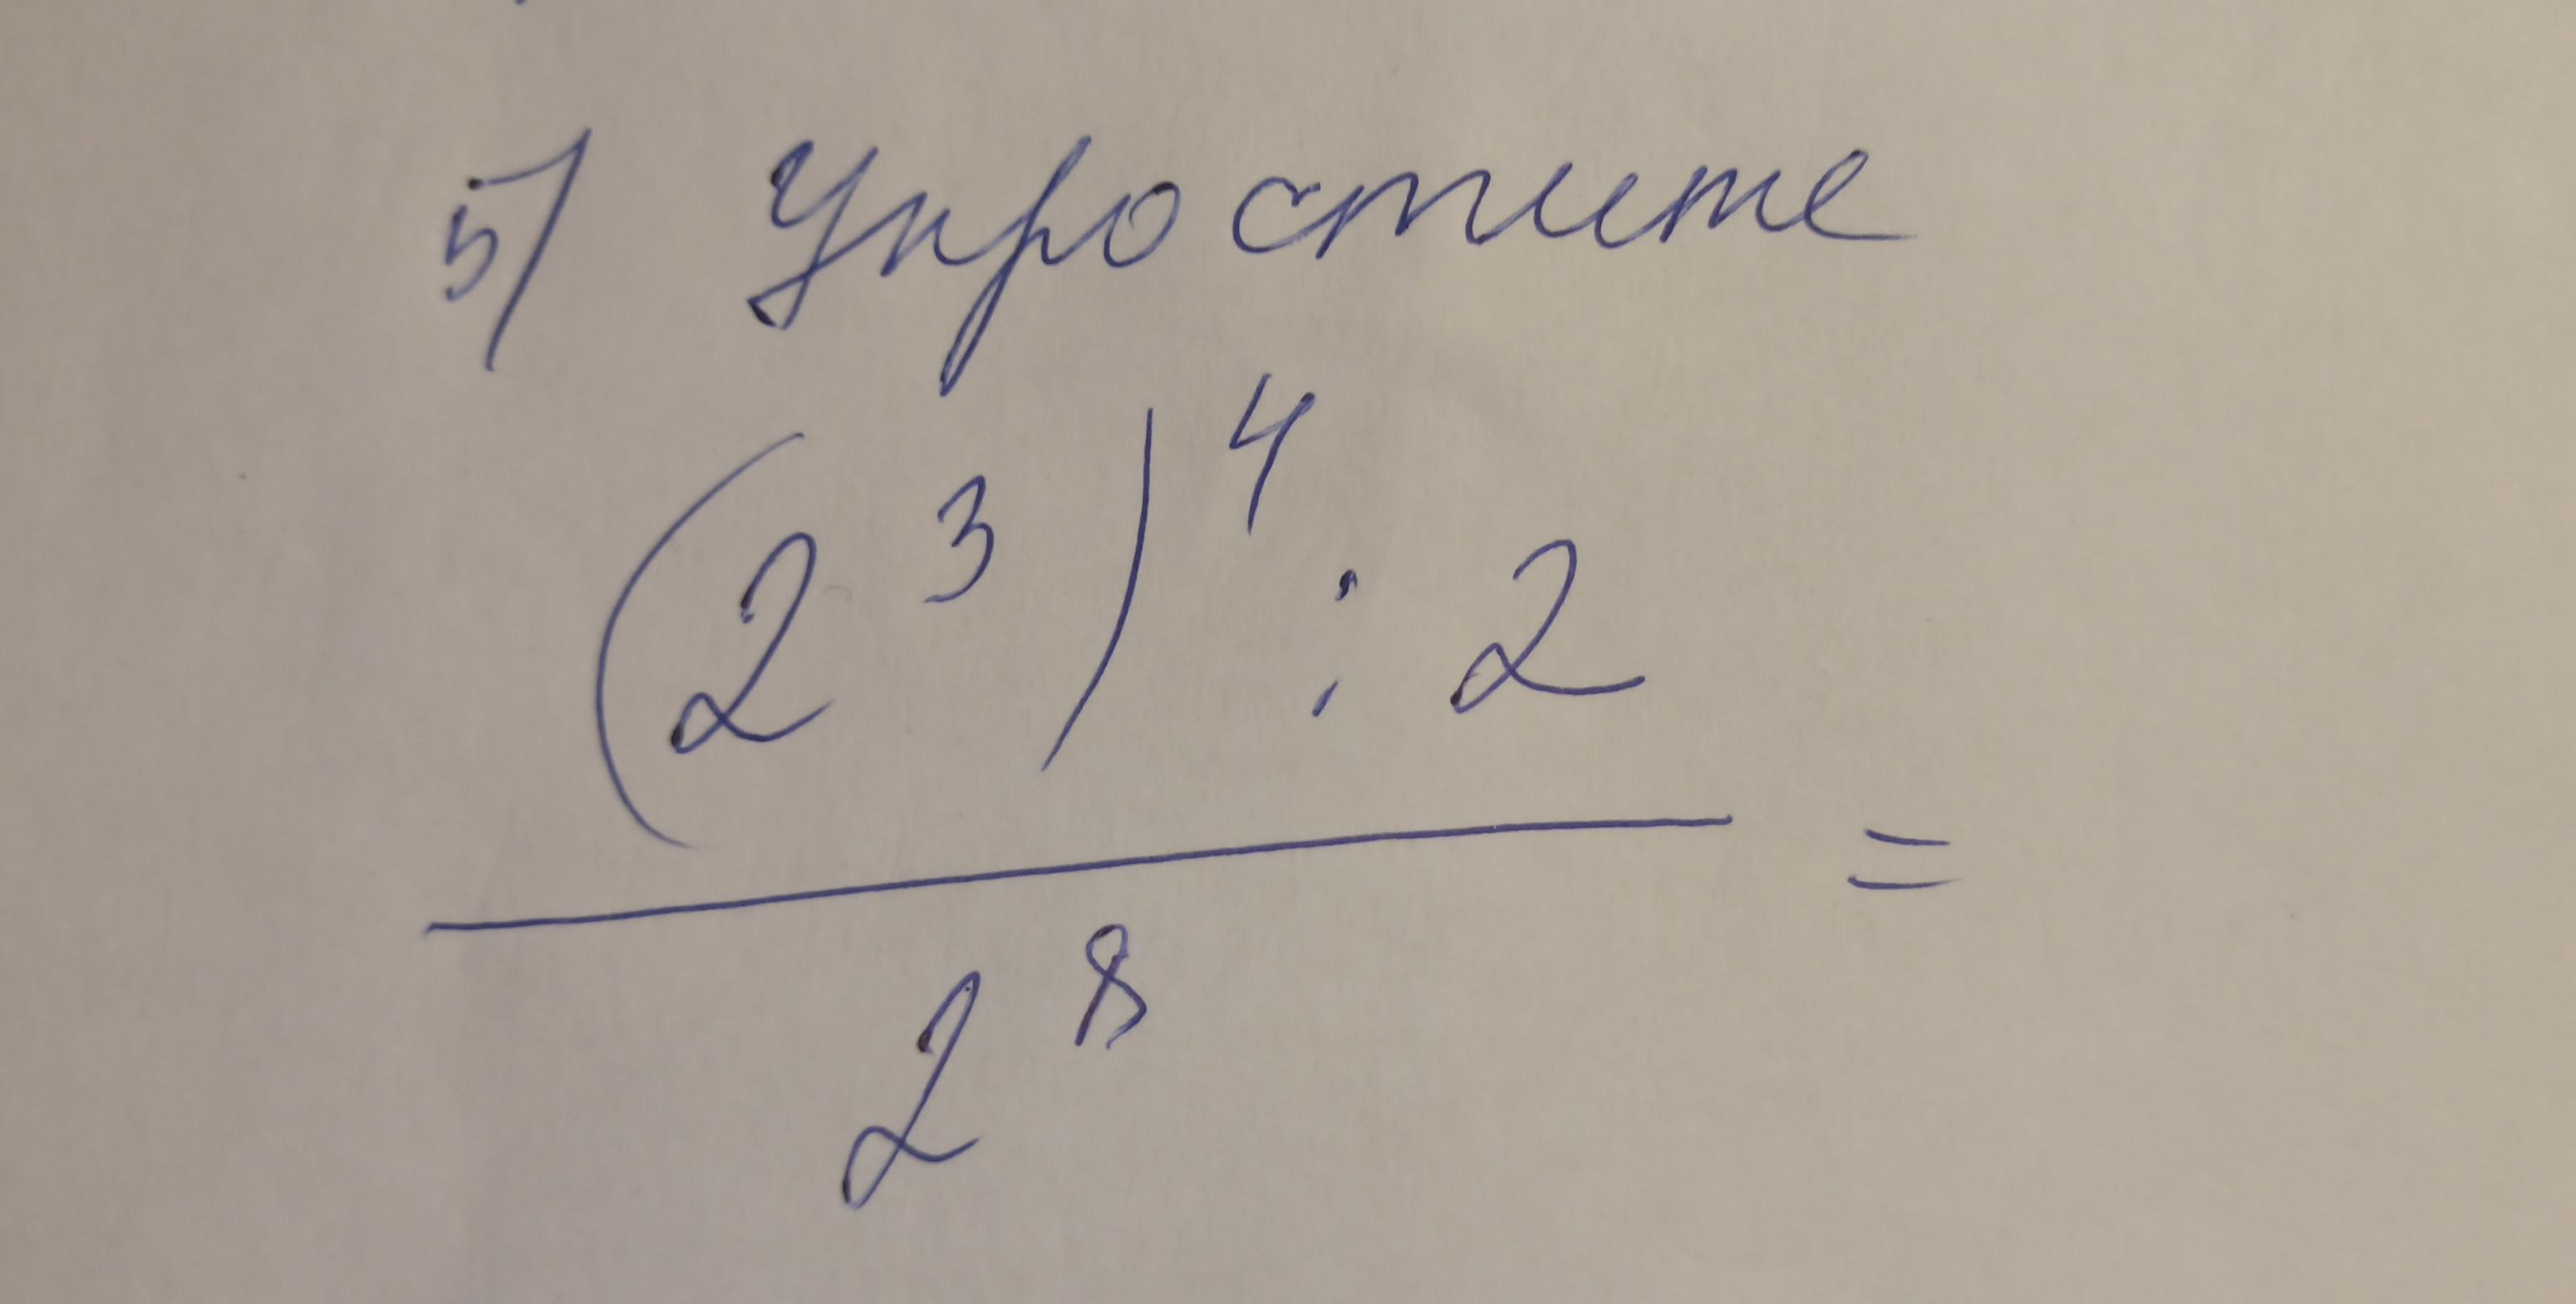 5) Упростите
(2³)⁴ : 2
=
2⁸